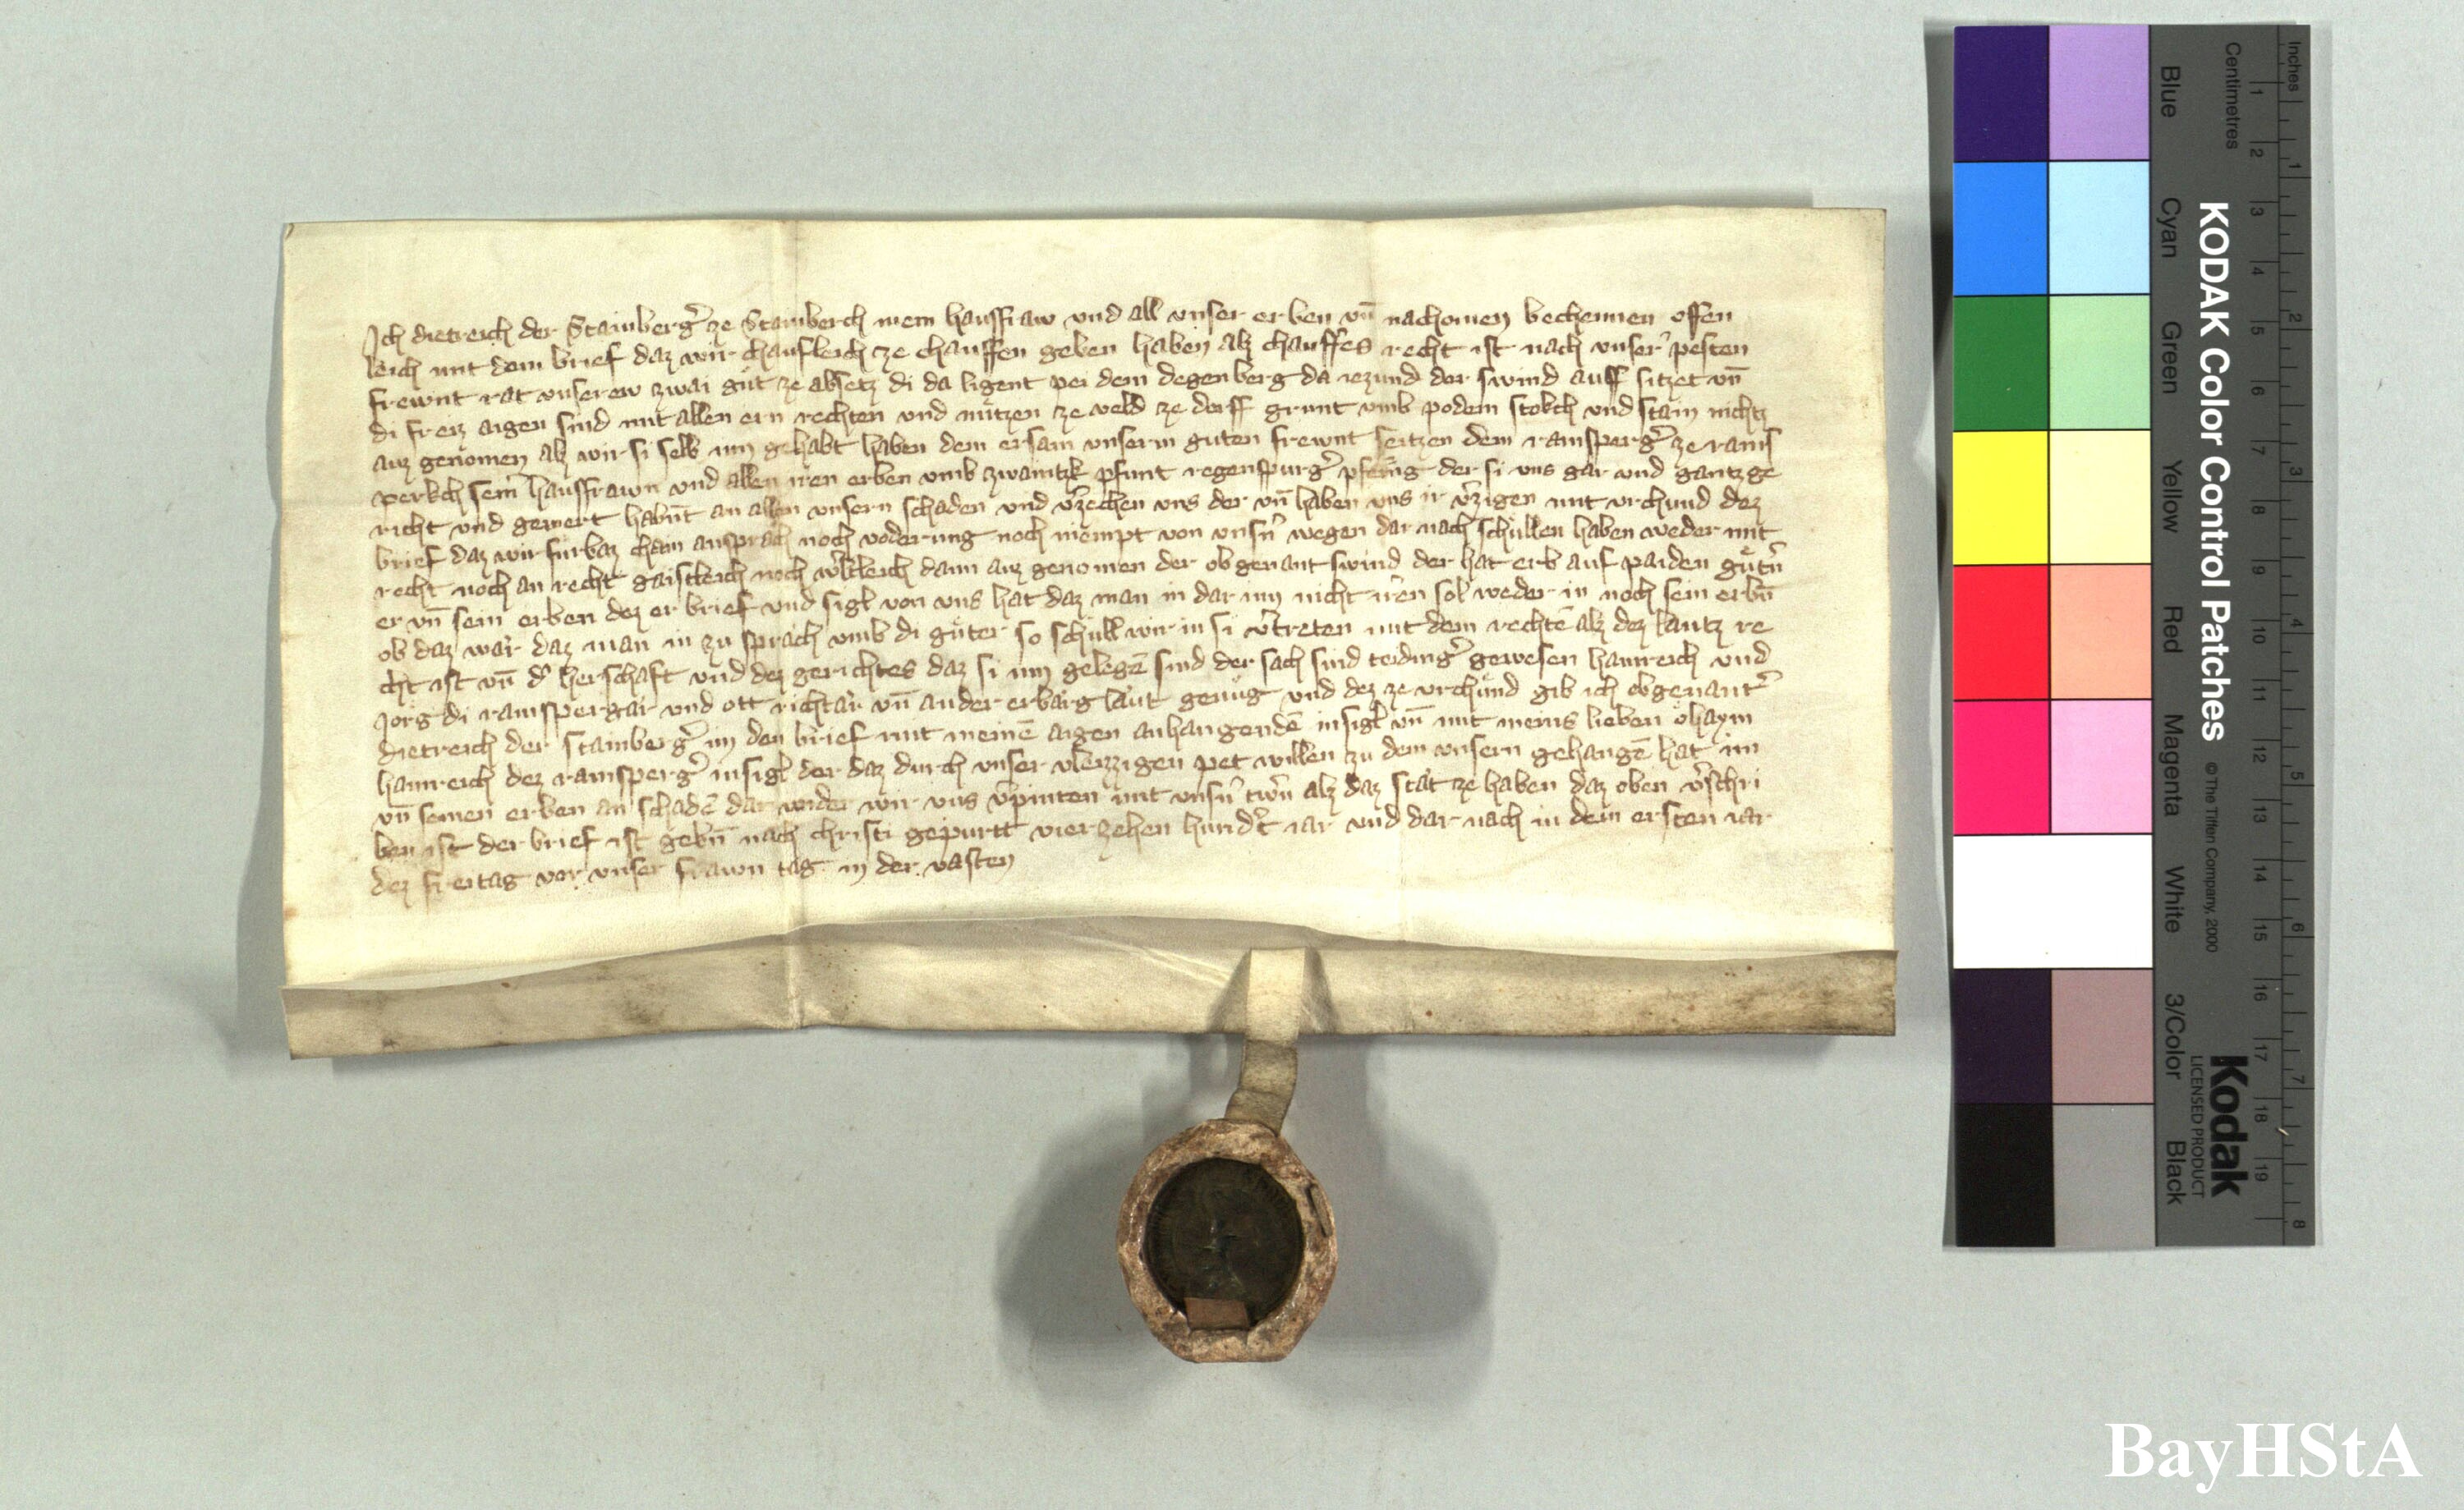 Ich dietreich der Stainberg̉ ze Stainberch mein hausfraw vnd all vnser erben vn̄ nachomen bechennen offen
leich mit dem brief daz wir chaufleich ze chauffen geben haben alz chauffes recht ist nach vnser̉ pesten
frewnt rat vnserew zwai gůt ze absetz di da ligent pei dem degenberg da iezund der swind auff sitzet vn̄
di freiz aigen sind mit allen ern rechten vnd nützen ze veld ze dorff grunt vmb podem stokch vnd stain nichtz
auz genömen alz wir si selb inn gehabt haben dem ersam vnserm guten frewnt seitzen dem ramsperg̉ ze rams
perkch sein̄ hausfrawn vnd allen iren erben vmb zwaintzk pfunt regenspurg̉ pfēing der si vns gar vnd gantz ge
richt vnd gewert habn̄t an allen vnsern schaden vnd v̉zechen vns der vn̄ haben vns ir v̉zigen mit vrchund dez
brief daz wir fürbaz chain ansprach noch voderung noch niempt von vnsn̉ wegen dar nach schüllen haben weder mit
recht noch an recht gaistleich noch w̉ltleich dann auz genomen der obgenant swind der hat erb auf paiden gůtn̉
er vn̄ sein erben dez er brief vnd sigl von vns hat daz man in dar inn nicht irren sol weder in noch sein erbn̄
ob daz wär daz man in zu spräch vmb di güter so schüll wir in si v̉treten mit dem rechtē alz dez lantz re
cht ist vn̄ d̉ herschaft vnd dez gerichtes daz si inn gelegē sind der sach sind teiding̉ gewesen hainreich vnd
Jorg di ramspergär vnd ott richtär vn̄ ander erbärg läut genüg vnd dez ze vrchünd gib ich obgenant̉
dietreich der stainberg̉ in den brief mit meinē aigen anhangendē insigl vn̄ mit meins lieben öhaym
hainreich dez ramsperg̉ insigl der daz durch vnser vleizzigen pet willen zu dem vnsern gehangē hat im
vn̄ seinen erben an schadē dar vnder wir vns v̉pinten mit vnsn̉ trẘn alz daz stät ze haben daz oben v̉schri
ben ist der brief ist gebn̄ nach christi gepurtt vierzehen hund̉t iar vnd dar nach in dem ersten iar
dez freitag vor vnser frawn tag in der vasten
KODAK Color Control Patches
©The Tiffen Company, 2000
Kodak
LICENSED PRODUCT
Inches
Centimetres
1 2 3 4 5 6 7 8
1 2 3 4 5 6 7 8 9 10 11 12 13 14 15 16 17 18 19
Blue
Cyan
Green
Yellow
Red
Magenta
White
3/Color
Black
BayHStA